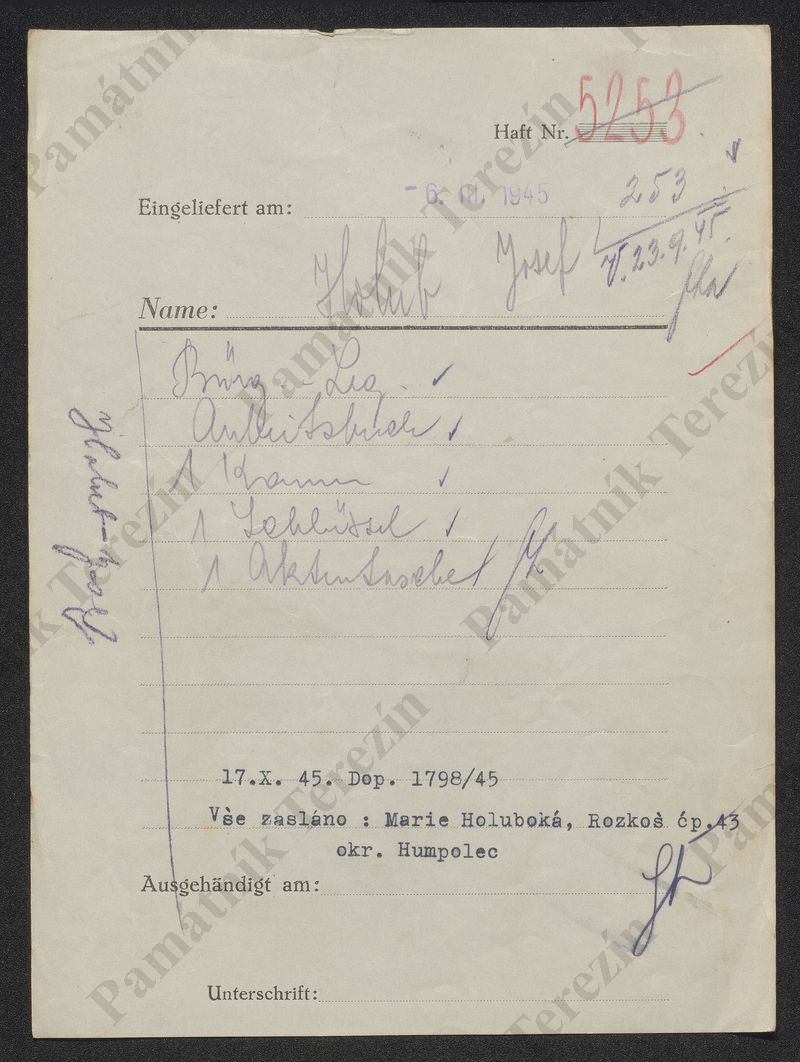 Haft Nr. 5253
253
Eingeliefert am: - 6. III. 1945
V. 23. 9. 45.
Name: Holub Josef
Bürg. Leg. ✓
Arbeitsbuch ✓
1 Kamm ✓
1 Schlüssel ✓
1 Aktentasche
Holub Josef
17.X. 45. Dop. 1798/45
Vše zasláno : Marie Holuboká, Rozkoš čp.43
okr. Humpolec
Ausgehändigt am:
Unterschrift:
Památník Terezín